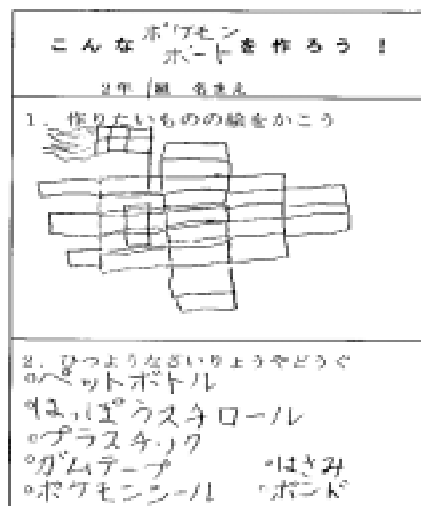 こんな ポケモンボート を作ろう！
2年 1組 名まえ
1. 作りたいものの絵をかこう
2. ひつようなざいりょうやどうぐ
°ペットボトル
°はっぽうスチロール
°プラスチック
°ガムテープ °はさみ
°ポケモンシール °ボンド